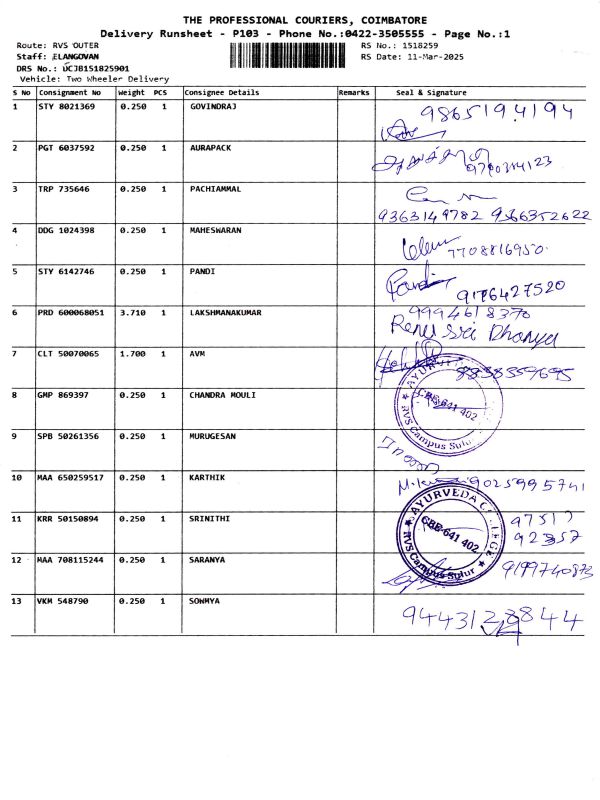 THE PROFESSIONAL COURIERS, COIMBATORE
Delivery Runsheet - P103 - Phone No.:0422-3505555 - Page No.:1
Route: RVS OUTER
RS No.: 1518259
Staff: ELANGOVAN
RS Date: 11-Mar-2025
DRS No.: UCJB151825901
Vehicle: Two Wheeler Delivery
S No Consignment No Weight PCS Consignee Details Remarks Seal & Signature
1 STY 8021369 0.250 1 GOVINDRAJ 9865194194
2 PGT 6037592 0.250 1 AURAPACK
3 TRP 735646 0.250 1 PACHIAMMAL
9363149782 9366352622
4 DDG 1024398 0.250 1 MAHESWARAN 7708816950
5 STY 6142746 0.250 1 PANDI Pandi
9176427520
6 PRD 600068051 3.710 1 LAKSHMANAKUMAR 9994618370
Renu Sri Dhanya
7 CLT 50070065 1.700 1 AVM
8838359695
8 GMP 869397 0.250 1 CHANDRA MOULI
CBE-641 402
RVS Campus Sulur
9 SPB 50261356 0.250 1 MURUGESAN
10 MAA 650259517 0.250 1 KARTHIK 9025995741
11 KRR 50150894 0.250 1 SRINITHI 97517
92357
AYURVEDA COLLEGE
CBE-641 402
RVS Campus Sulur
12 MAA 708115244 0.250 1 SARANYA 9199740873
13 VKM 548790 0.250 1 SOWMYA